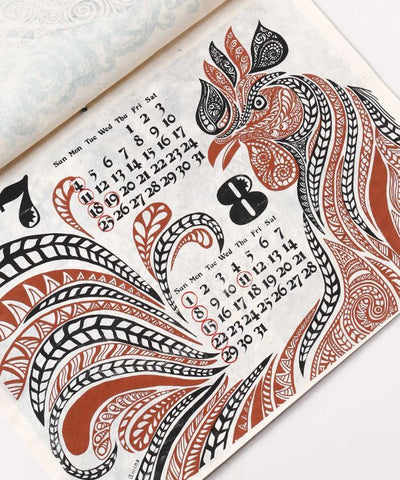 7
Sun Mon Tue Wed Thu Fri Sat
1 2 3
4 5 6 7 8 9 10
11 12 13 14 15 16 17
18 19 20 21 22 23 24
25 26 27 28 29 30 31
8
Sun Mon Tue Wed Thu Fri Sat
1 2 3 4 5 6 7
8 9 10 11 12 13 14
15 16 17 18 19 20 21
22 23 24 25 26 27 28
29 30 31